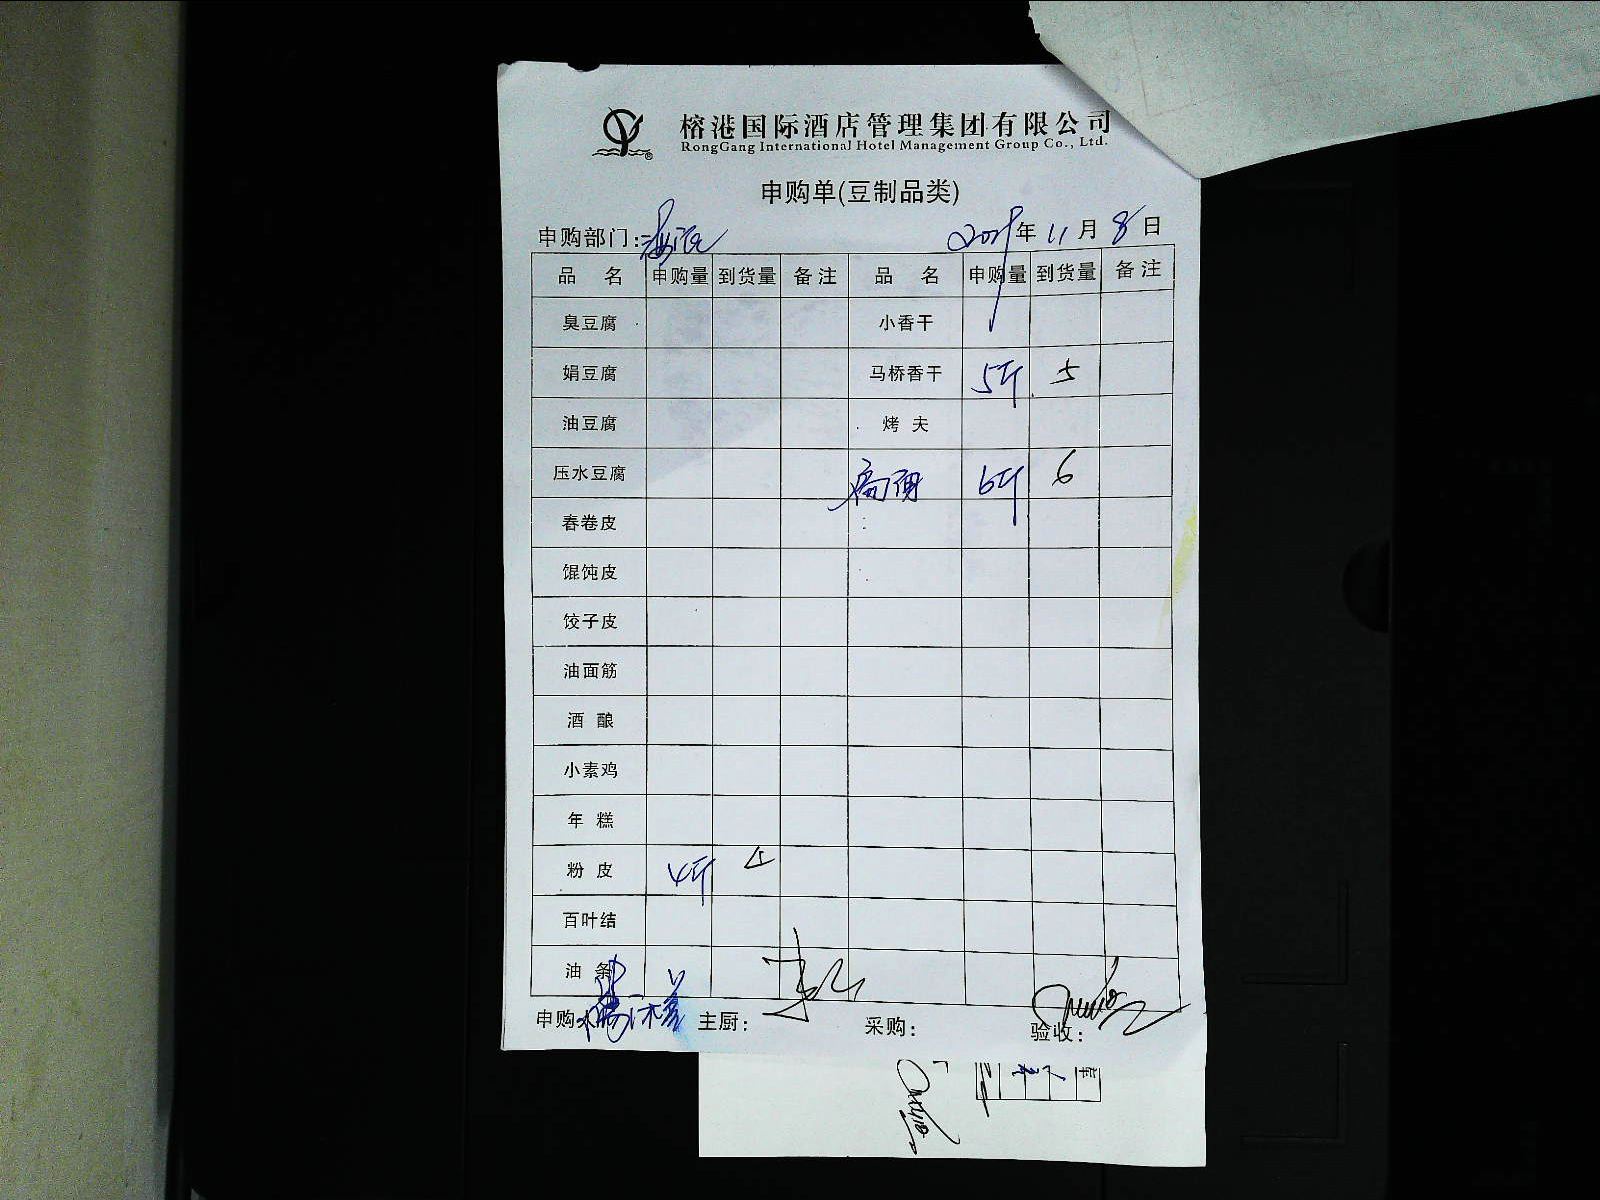 榕港国际酒店管理集团有限公司
RongGang International Hotel Management Group Co., Ltd.
申购单(豆制品类)
申购部门: 年 11 月 8 日
品 名 申购量 到货量 备注 品 名 申购量 到货量 备注
臭豆腐 小香干
娟豆腐 马桥香干 5斤 5
油豆腐 烤 夫
压水豆腐 6斤 6
春卷皮
馄饨皮
饺子皮
油面筋
酒 酿
小素鸡
年 糕
粉 皮 4斤 4
百叶结
油 条
申购人 主厨: 采购: 验收: